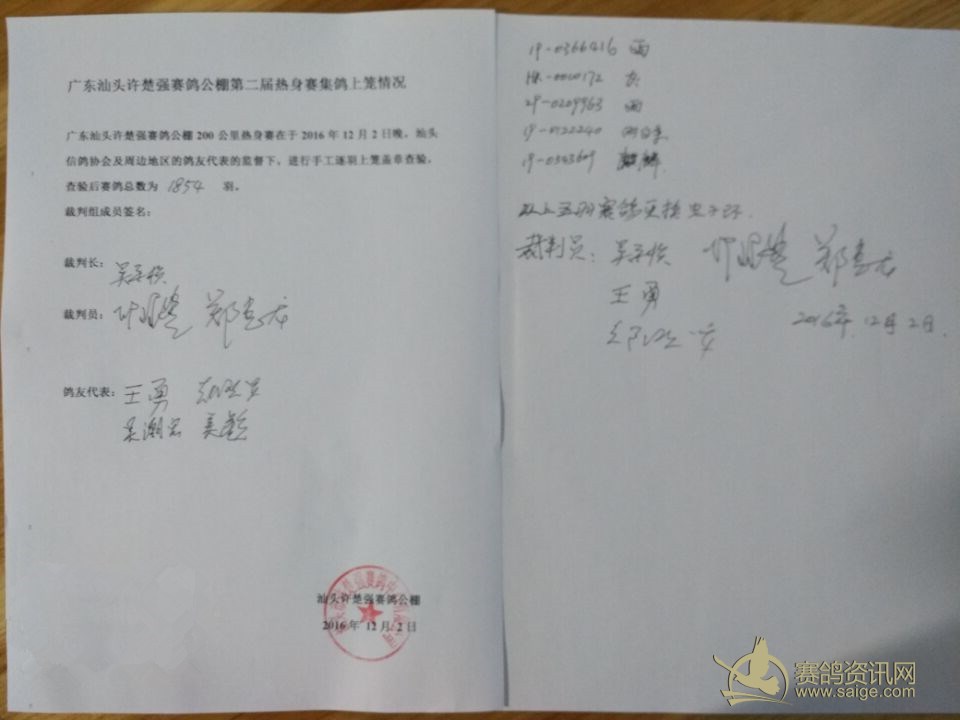 广东汕头许楚强赛鸽公棚第二届热身赛集鸽上笼情况
广东汕头许楚强赛鸽公棚 200 公里热身赛在于 2016 年 12 月 2 日晚，汕头
信鸽协会及周边地区的鸽友代表的监督下，进行手工逐羽上笼盖章查验，
查验后赛鸽总数为 1854 羽。
裁判组成员签名：
裁判长：
裁判员：
鸽友代表：王勇
汕头许楚强赛鸽公棚
2016 年 12 月 2 日
19-0366416 雨
-0010172 灰
29-0209963 雨
19-0122240
19-0343609
以上五羽赛鸽更换电子环.
裁判员：
王勇
2016年12月2日.
赛鸽资讯网
www.saige.com